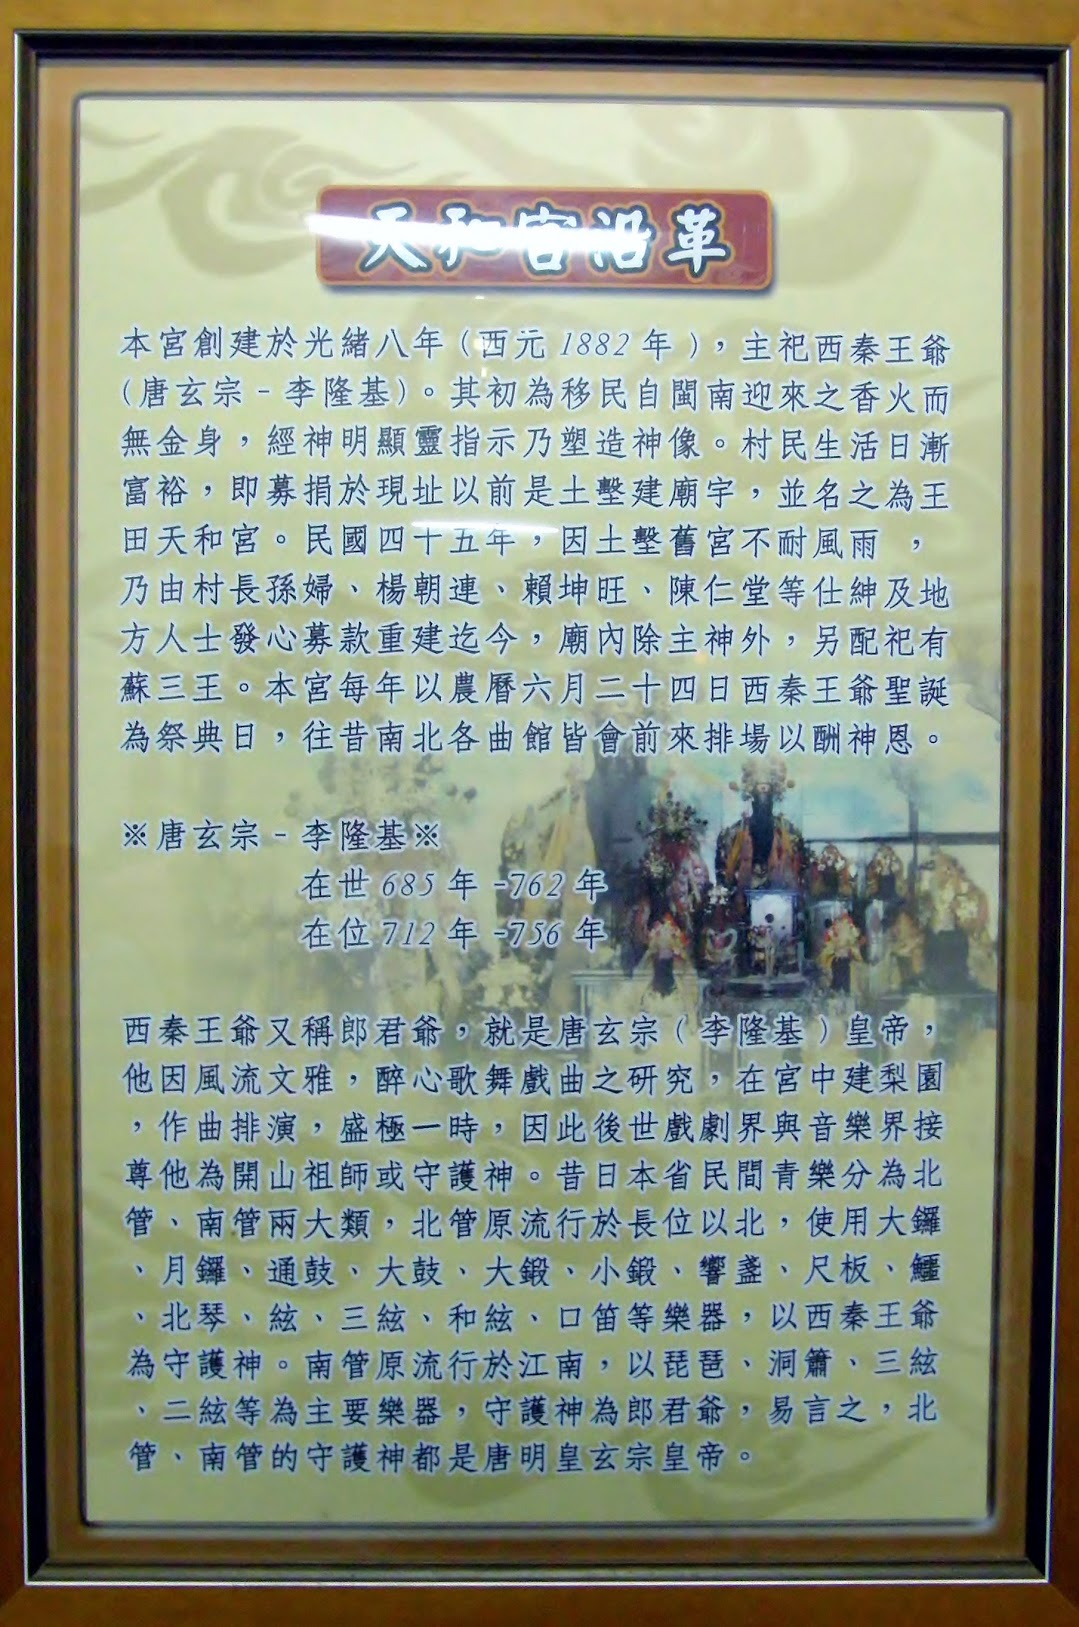 天和宮沿革
本宮創建於光緒八年(西元1882年)，主祀西秦王爺
(唐玄宗-李隆基)。其初為移民自閩南迎來之香火而
無金身，經神明顯靈指示乃塑造神像。村民生活日漸
富裕，即募捐於現址以前是土墼建廟宇，並名之為王
田天和宮。民國四十五年，因土墼舊宮不耐風雨，
乃由村長孫婦、楊朝連、賴坤旺、陳仁堂等仕紳及地
方人士發心募款重建迄今，廟內除主神外，另配祀有
蘇三王。本宮每年以農曆六月二十四日西秦王爺聖誕
為祭典日，往昔南北各曲館皆會前來排場以酬神恩。
※唐玄宗-李隆基※
在世685年-762年
在位712年-756年
西秦王爺又稱郎君爺，就是唐玄宗(李隆基)皇帝，
他因風流文雅，醉心歌舞戲曲之研究，在宮中建梨園
，作曲排演，盛極一時，因此後世戲劇界與音樂界接
尊他為開山祖師或守護神。昔日本省民間青樂分為北
管、南管兩大類，北管原流行於長位以北，使用大鑼
、月鑼、通鼓、大鼓、大鍛、小鍛、響盞、尺板、鱷
、北琴、絃、三絃、和絃、口笛等樂器，以西秦王爺
為守護神。南管原流行於江南，以琵琶、洞簫、三絃
、二絃等為主要樂器，守護神為郎君爺，易言之，北
管、南管的守護神都是唐明皇玄宗皇帝。